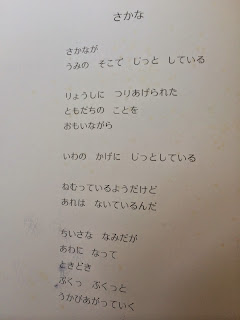 さかな
さかなが
うみの　そこで　じっと　している
りょうしに　つりあげられた
ともだちの　ことを
おもいながら
いわの　かげに　じっとしている
ねむっているようだけど
あれは　ないているんだ
ちいさな　なみだが
あわに　なって
ときどき
ぷくっ　ぷくっと
うかびあがっていく